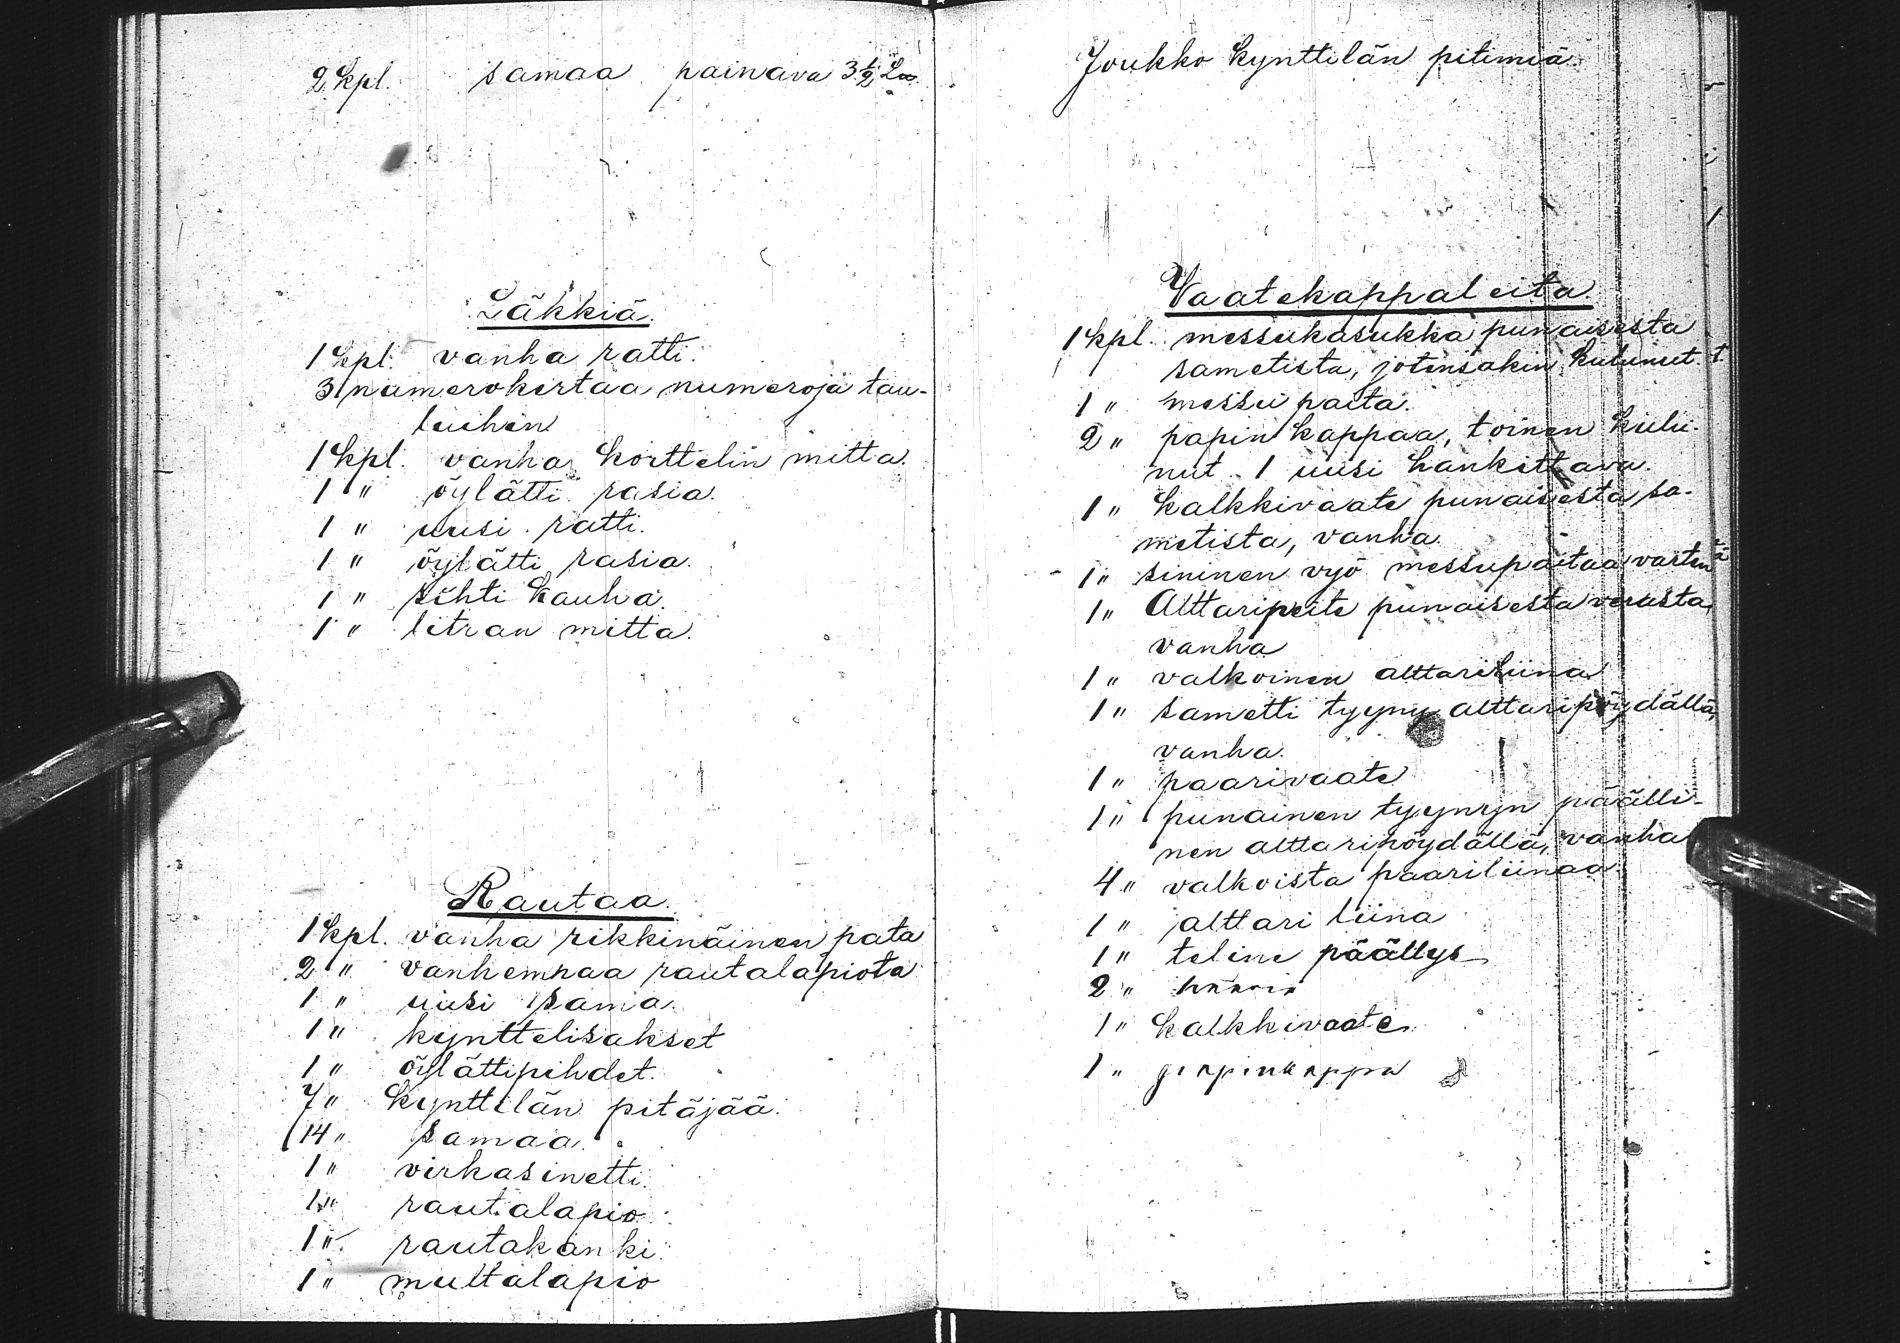 2 kpl. samaa painava 3 1/2
Läkkiä.
1 kpl. vanha ratti.
3 numerokertaa numeroja tau-
luihin
1 kpl. vanha korttelin mitta.
1 " öylätti rasia.
1 " uusi ratti.
1 " öylätti rasia.
1 " sihti kauha.
1 " litran mitta.
Rautaa.
1 kpl. vanha rikkinäinen pata
2 " vanhempaa rautalapiota
1 " uusi sama.
1 " kynttelisakset
1 " öylättipihdet.
7 " kynttilän pitäjää.
14 " samaa.
1 " virkasinetti.
1 " rautalapio.
1 " rautakanki.
1 " multalapio
Joukko kynttilän pitimiä.
Vaatekappaleita.
1 kpl. messukasukka punaisesta
sametista, jotensakin kulunut.
1 " messu paita.
2 " papin kappaa, toinen kulu-
nut. 1 uusi hankittava.
1 " kalkkivaate punaisesta sa-
metista, vanha
1 " sininen vyö messupaitaa varten
1 " Alttaripeite punaisesta verasta,
vanha
1 " valkoinen alttariliina
1 " sametti tyyny alttaripöydällä,
vanha.
1 " paarivaate
1 " punainen tyynyn päälli-
nen alttaripöydällä, vanha
4 " valkoista paariliinaa.
1 " alttari liina
1 " teline päällys
2 "
1 " kalkkivaate.
1 " papinkappa